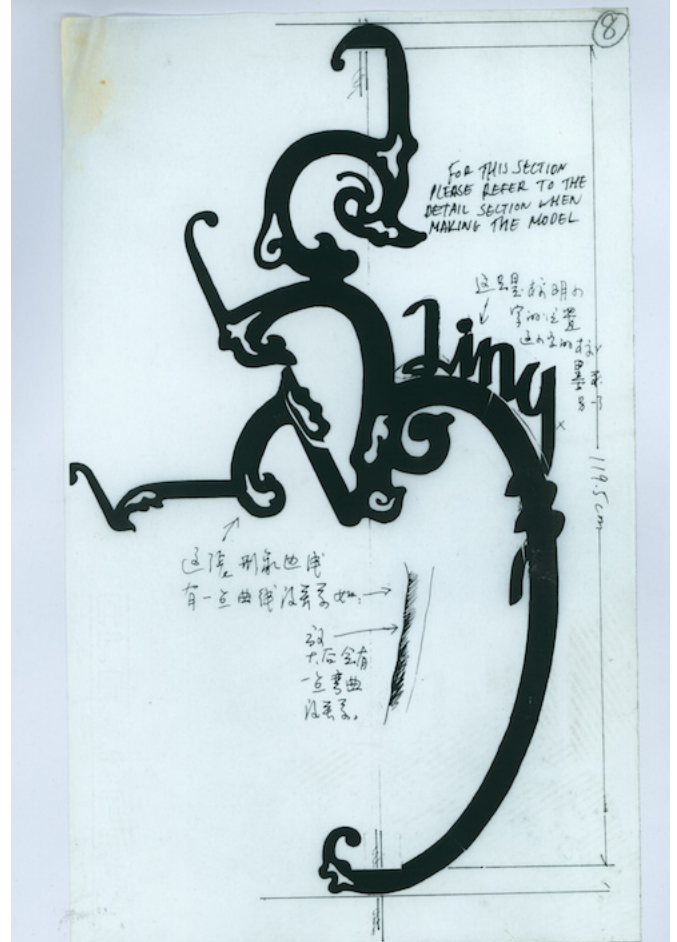 8
FOR THIS SECTION
PLEASE REFER TO THE
DETAIL SECTION WHEN
MAKING THE MODEL
这只是标明小
字的位置
Ling
119.5cm
有一点曲线没关系
放
大后会有
一点弯曲
没关系。